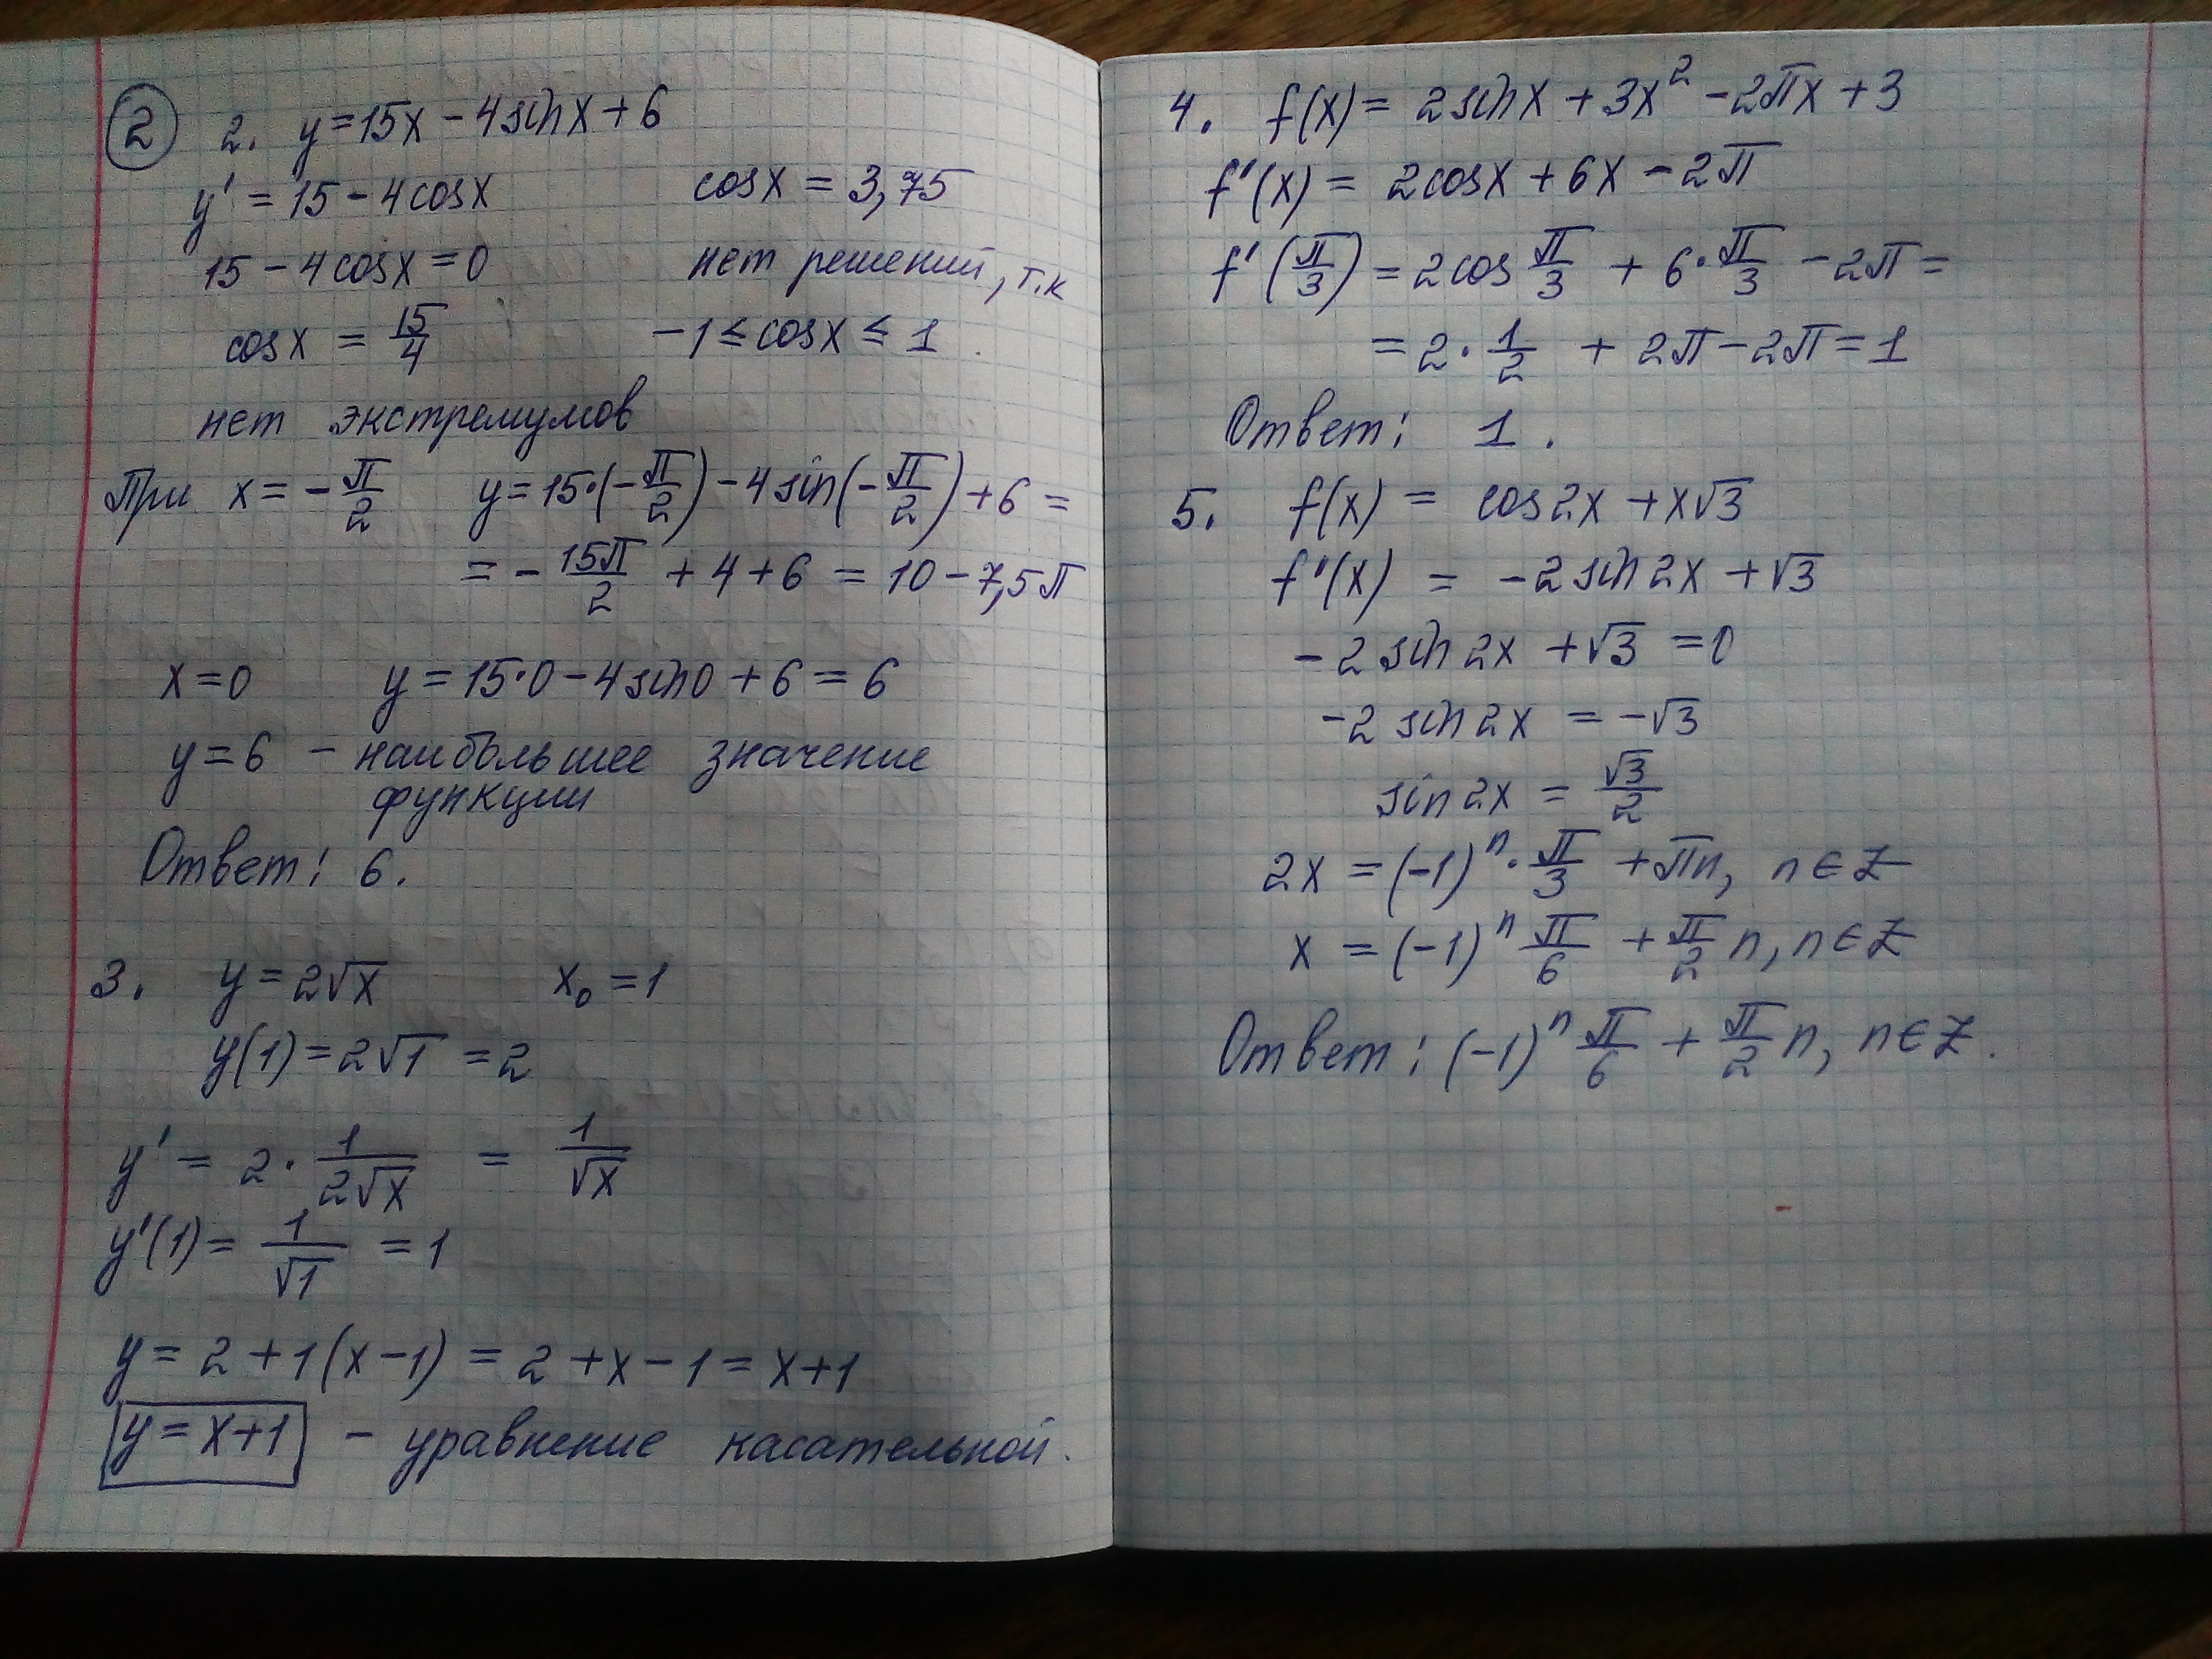 ② 2. y = 15x - 4sin x + 6
y' = 15 - 4cosx
15 - 4cosx = 0
cosx = 15/4
cosx = 3,75
нет решений, т.к
-1 ≤ cosx ≤ 1.
нет экстремумов
При x = -π/2 y = 15·(-π/2) - 4sin(-π/2) + 6 =
= -15π/2 + 4 + 6 = 10 - 7,5π
x = 0 y = 15·0 - 4sin0 + 6 = 6
y = 6 - наибольшее значение
функции
Ответ: 6.
3. y = 2√x x₀ = 1
y(1) = 2√1 = 2
y' = 2· 1/(2√x) = 1/√x
y'(1) = 1/√1 = 1
y = 2 + 1(x-1) = 2 + x - 1 = x+1
y = x+1 - уравнение касательной.
4. f(x) = 2sinx + 3x² - 2πx + 3
f'(x) = 2cosx + 6x - 2π
f'(π/3) = 2cos π/3 + 6·π/3 - 2π =
= 2·1/2 + 2π - 2π = 1
Ответ: 1.
5. f(x) = cos2x + x√3
f'(x) = -2sin2x + √3
-2sin2x + √3 = 0
-2sin2x = -√3
sin2x = √3/2
2x = (-1)ⁿ·π/3 + πn, n∈Z
x = (-1)ⁿ π/6 + π/2 n, n∈Z
Ответ: (-1)ⁿ π/6 + π/2 n, n∈Z.